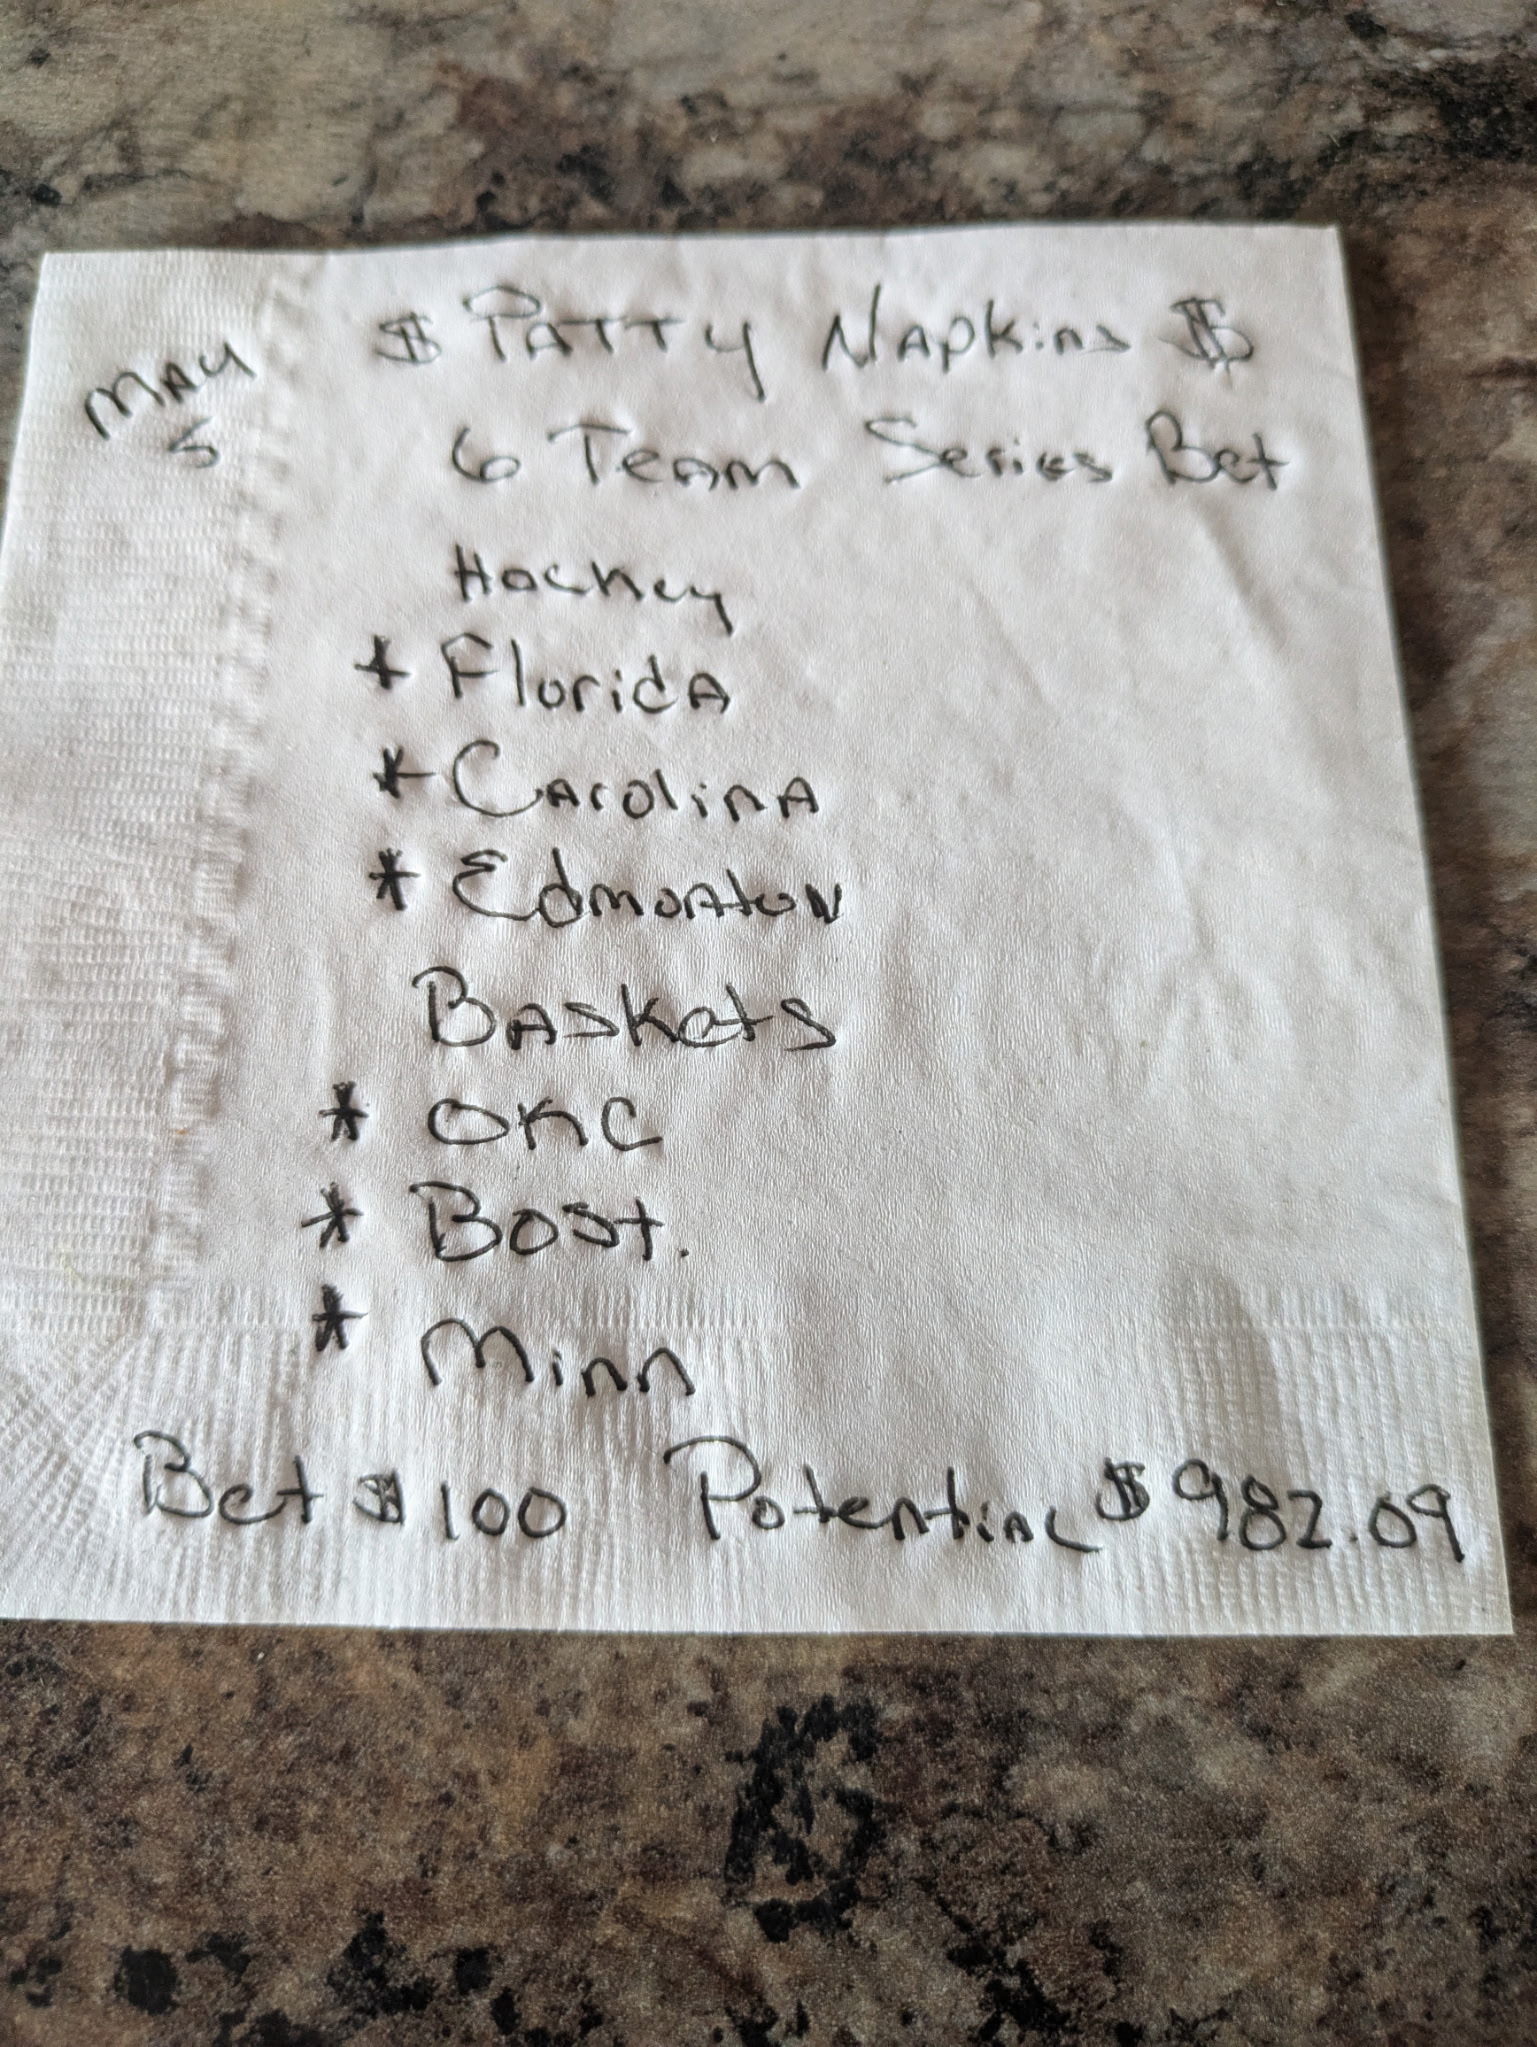 $ Patty Napkins $
May
5
6 Team Series Bet
Hockey
* Florida
* Carolina
* Edmonton
Baskets
* OKC
* Bost.
* Minn
Bet $100 Potential $982.09